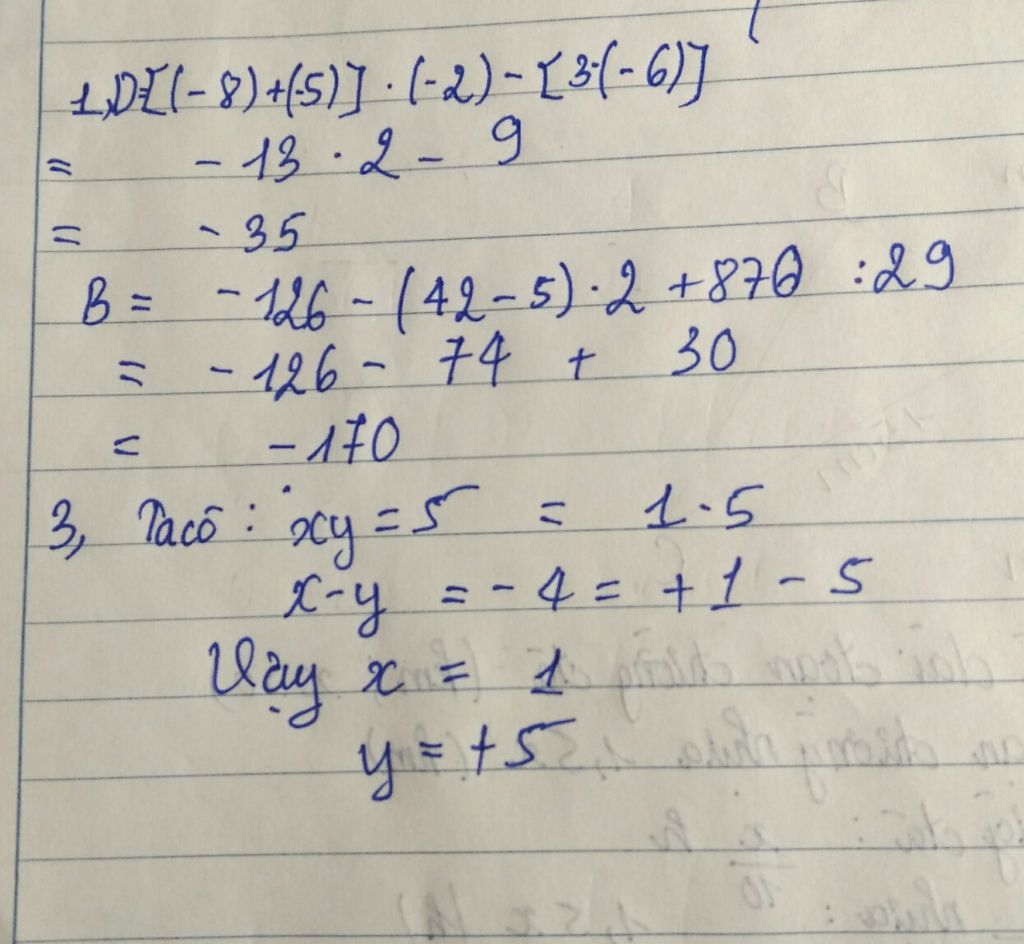 1, D=[(-8)+(-5)] . (-2) - [3-(-6)]
= -13 . 2 - 9
= -35
B = -126 - (42-5) . 2 + 870 : 29
= -126 - 74 + 30
= -170
3, Ta có : xy = 5 = 1.5
x-y = -4 = +1 - 5
Vậy x = 1
y = +5